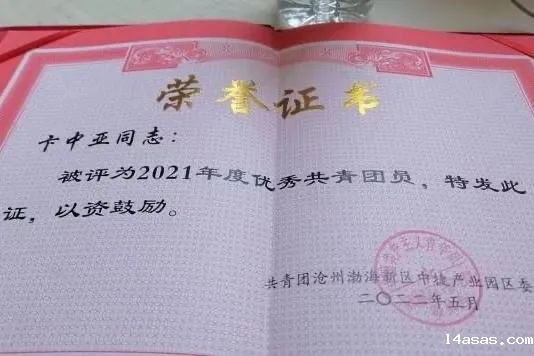 荣誉证书
卡中亚同志：
被评为2021年度优秀共青团员，特发此
证，以资鼓励。
共青团沧州渤海新区中捷产业园区委
二〇二二年五月
14asas.com